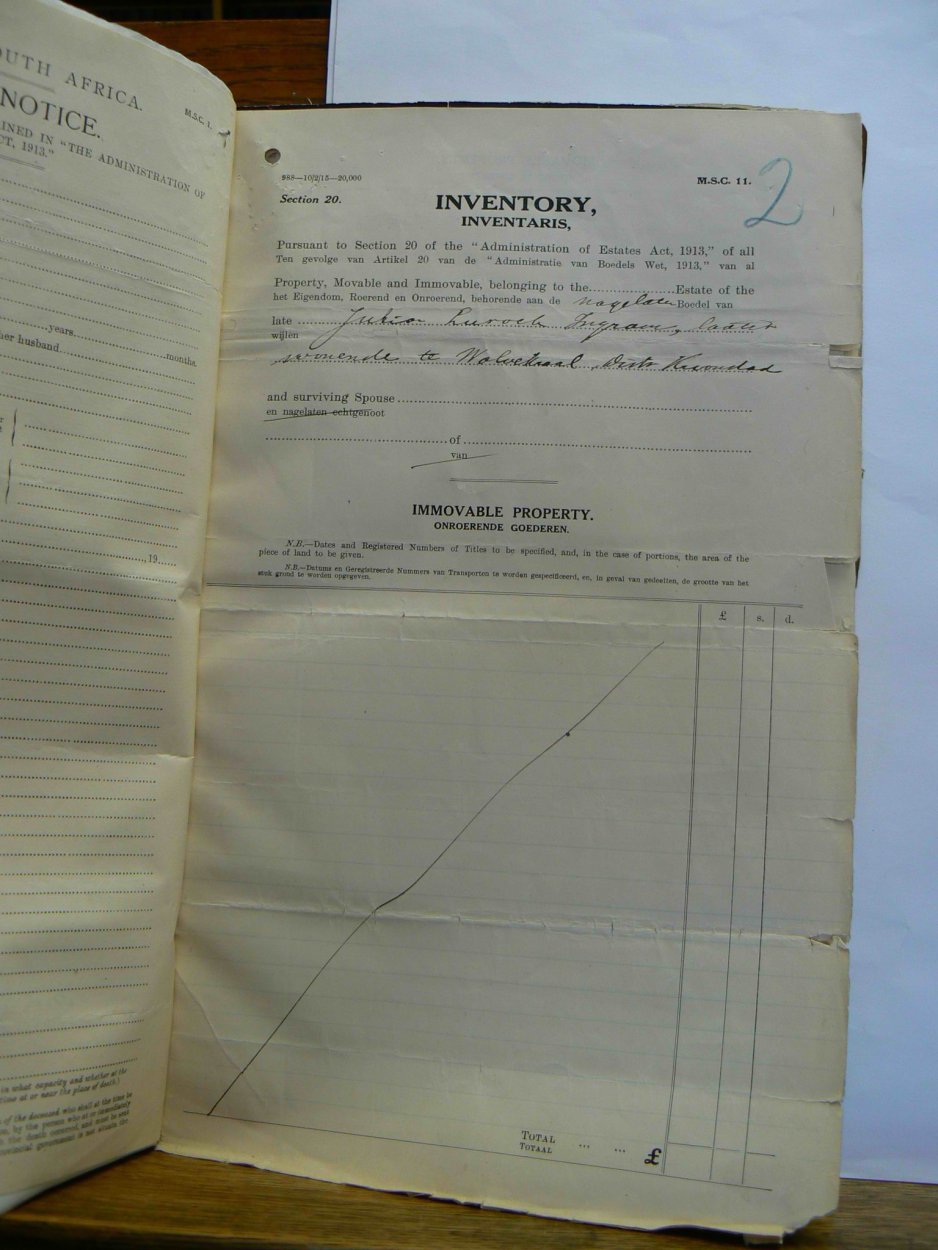 OUTH AFRICA.
M.S.C. 1.
NOTICE.
INED IN "THE ADMINISTRATION OF
CT, 1913."
years.
her husband
months.
19
in what capacity and whether at the
time at or near the place of death.)
of the deceased who shall at the time be
, by the person who at or immediately
the death occurred, and must be sent
provincial government is not situate the
988—10/2/15—20,000
M.S.C. 11.
2
Section 20.
INVENTORY,
INVENTARIS,
Pursuant to Section 20 of the "Administration of Estates Act, 1913," of all
Ten gevolge van Artikel 20 van de "Administratie van Boedels Wet, 1913," van al
Property, Movable and Immovable, belonging to the Estate of the
het Eigendom, Roerend en Onroerend, behorende aan de nagelaten Boedel van
late Ingram, laatst
wijlen
wonende te Distr
and surviving Spouse
en nagelaten echtgenoot
of
van
IMMOVABLE PROPERTY.
ONROERENDE GOEDEREN.
N.B.—Dates and Registered Numbers of Titles to be specified, and, in the case of portions, the area of the
piece of land to be given.
N.B.—Datums en Geregistreerde Nummers van Transporten te worden gespecificeerd, en, in geval van gedeelten, de grootte van het
stuk grond te worden opgegeven.
£ s. d.
TOTAL ... ... £
TOTAAL